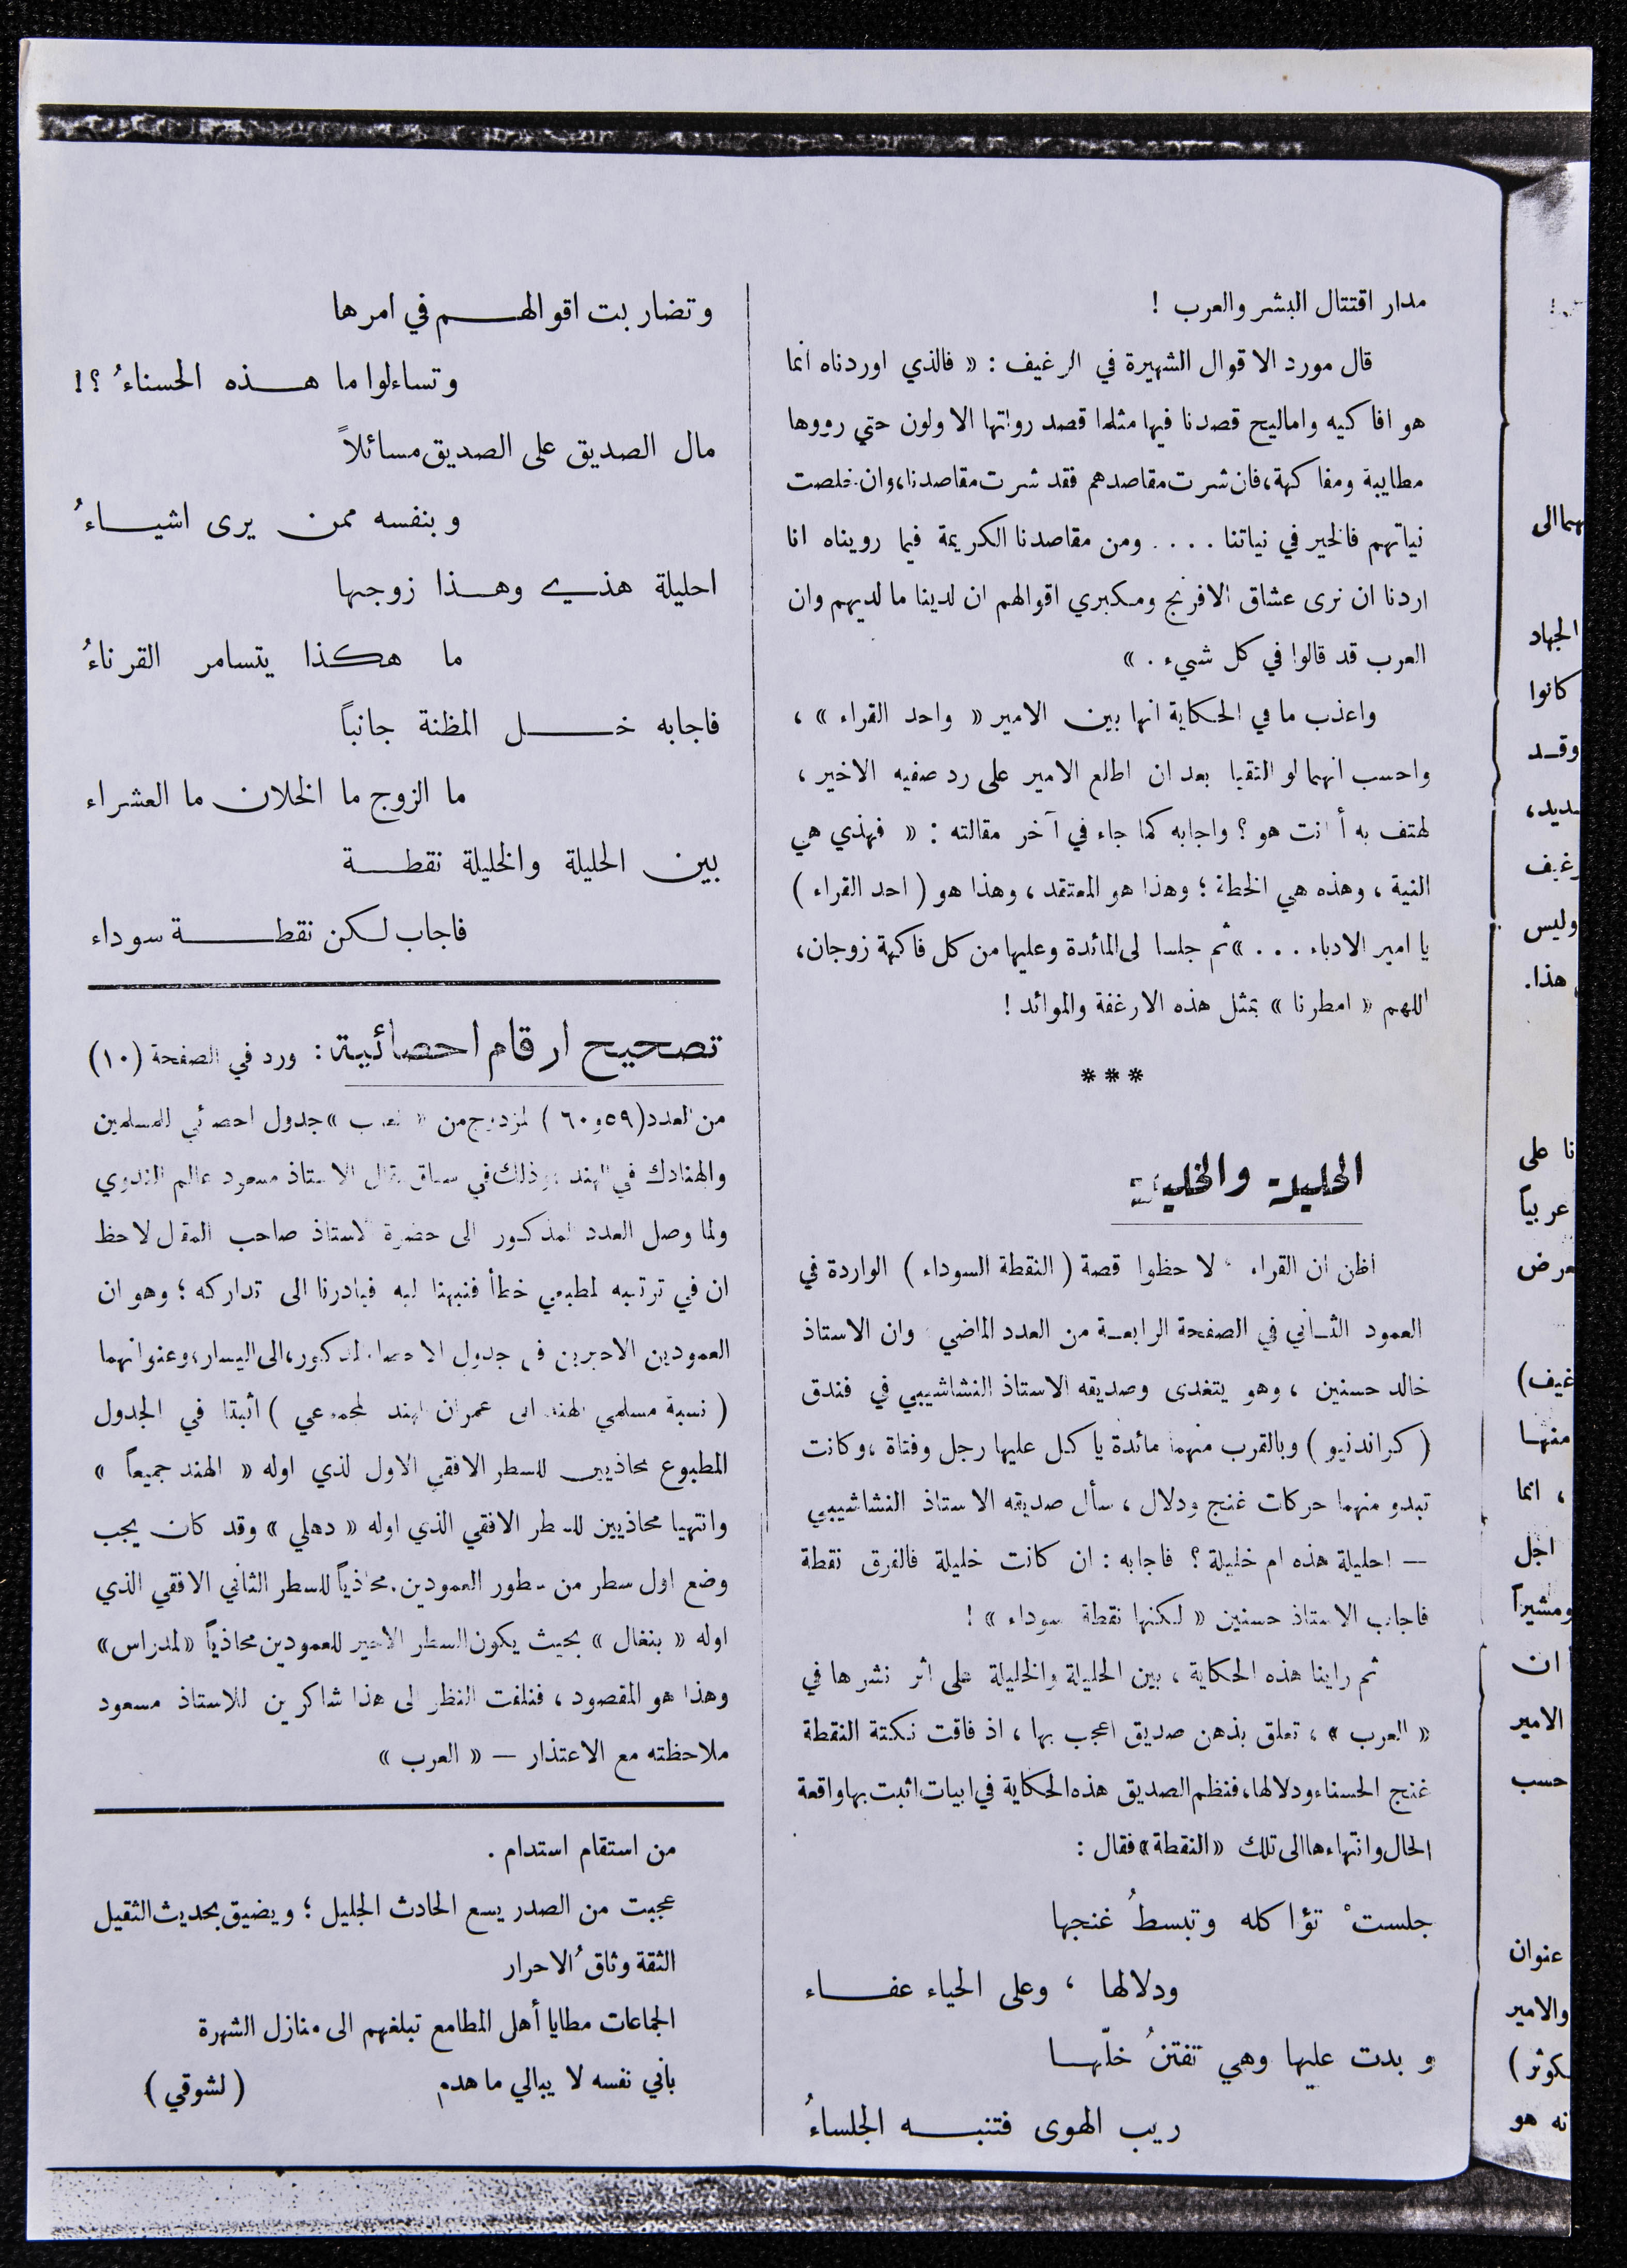 مدار اقتتال البشر والعرب !
قال مورد الاقوال الشهيرة في الرغيف : « فالذي اوردناه انما
هو افاكيه واماليح قصدنا فيها مثلما قصد رواتها الاولون حتي رووها
مطايبة ومفاكهة، فان شرت مقاصدهم فقد شرت مقاصدنا، وان خلصت
نياتهم فالخير في نياتنا . . . . ومن مقاصدنا الكريمة فيما رويناه انا
اردنا ان نرى عشاق الافرنج ومكبري اقوالهم ان لدينا ما لديهم وان
العرب قد قالوا في كل شيء . »
واعذب ما في الحكاية انها بين الامير « واحد القراء » ،
واحسب انهما لو التقيا بعد ان اطلع الامير على رد صفيه الاخير ،
لهتف به أ انت هو ؟ واجابه كما جاء في آخر مقالته : « فهذي هي
النية ، وهذه هي الخطة ؛ وهذا هو المعتقد ، وهذا هو ( احد القراء )
يا امير الادباء . . . » ثم جلسا لى المائدة وعليها من كل فاكهة زوجان،
اللهم « امطرنا » بمثل هذه الارغفة والموائد !
***
الحليلة والخليلة
اظن ان القراء لاحظوا قصة ( النقطة السوداء ) الواردة في
العمود الثاني في الصفحة الرابعة من العدد الماضي وان الاستاذ
خالد حسنين ، وهو يتغدى وصديقه الاستاذ النشاشيبي في فندق
( كراندنيو ) وبالقرب منهما مائدة يا كل عليها رجل وفتاة ، وكانت
تبدو منهما حركات غنج ودلال ، سأل صديقه الاستاذ النشاشيبي
— احليلة هذه ام خليلة ؟ فاجابه : ان كانت خليلة فالفرق نقطة
فاجاب الاستاذ حسنين « لكنها نقطة سوداء » !
ثم راينا هذه الحكاية ، بين الحليلة والخليلة على اثر نشرها في
« العرب » ، تعلق بذهن صديق اعجب بها ، اذ فاقت نكتة النقطة
غنج الحسناء ودلالها، فنظم الصديق هذه الحكاية في ابيات اثبت بها واقعة
الحال وانتهاءها الى تلك « النقطة » فقال :
جلستْ تؤاكله وتبسطُ غنجها
ودلالها ، وعلى الحياء عفاء
وبدت عليها وهي تفتنُ خلّها
ريب الهوى فتنبه الجلساءُ
وتضاربت اقوالهم في امرها
وتساءلوا ما هذه الحسناءُ ؟!
مال الصديق على الصديق مسائلاً
وبنفسه ممن يرى اشياءُ
احليلة هذي وهذا زوجها
ما هكذا يتسامر القرناءُ
فاجابه خل المظنة جانباً
ما الزوج ما الخلان ما العشراء
بين الحليلة والخليلة نقطة
فاجاب لكن نقطة سوداء
تصحيح ارقام احصائية : ورد في الصفحة (١٠)
من العدد (٥٩و٦٠ ) المزدوج من « العرب » جدول احصائي للمسلمين
والهنادك في الهند وذلك في سياق مقال الاستاذ مسعود عالم الندوي
ولما وصل العدد المذكور الى حضرة الاستاذ صاحب المقال لاحظ
ان في ترتيبه المطبعي خطأ فنبهنا اليه فبادرنا الى تداركه ؛ وهو ان
العمودين الاخيرين في جدول الاحصاء المذكور، الى اليسار، وعنوانهما
( نسبة مسلمي الهند الى عمران الهند المجموعي ) اثبتا في الجدول
المطبوع محاذيين للسطر الافقي الاول الذي اوله « الهند جميعاً »
وانتهيا محاذيين للسطر الافقي الذي اوله « دهلي » وقد كان يجب
وضع اول سطر من سطور العمودين محاذياً للسطر الثاني الافقي الذي
اوله « بنغال » بحيث يكون السطر الاخير للعمودين محاذياً «لمدراس»
وهذا هو المقصود ، فنلفت النظر الى هذا شاكرين للاستاذ مسعود
ملاحظته مع الاعتذار — « العرب »
من استقام استدام .
عجبت من الصدر يسع الحادث الجليل ؛ ويضيق بحديث الثقيل
الثقة وثاقُ الاحرار
الجماعات مطايا أهل المطامع تبلغهم الى منازل الشهرة
باني نفسه لا يبالي ما هدم ( لشوقي )
الجهاد
كانوا
وقد
وليس
هذا.
نا على
عربياً
منها
، انما
اجل
ومشيراً
ان
الامير
حسب
عنوان
والامير
نه هو